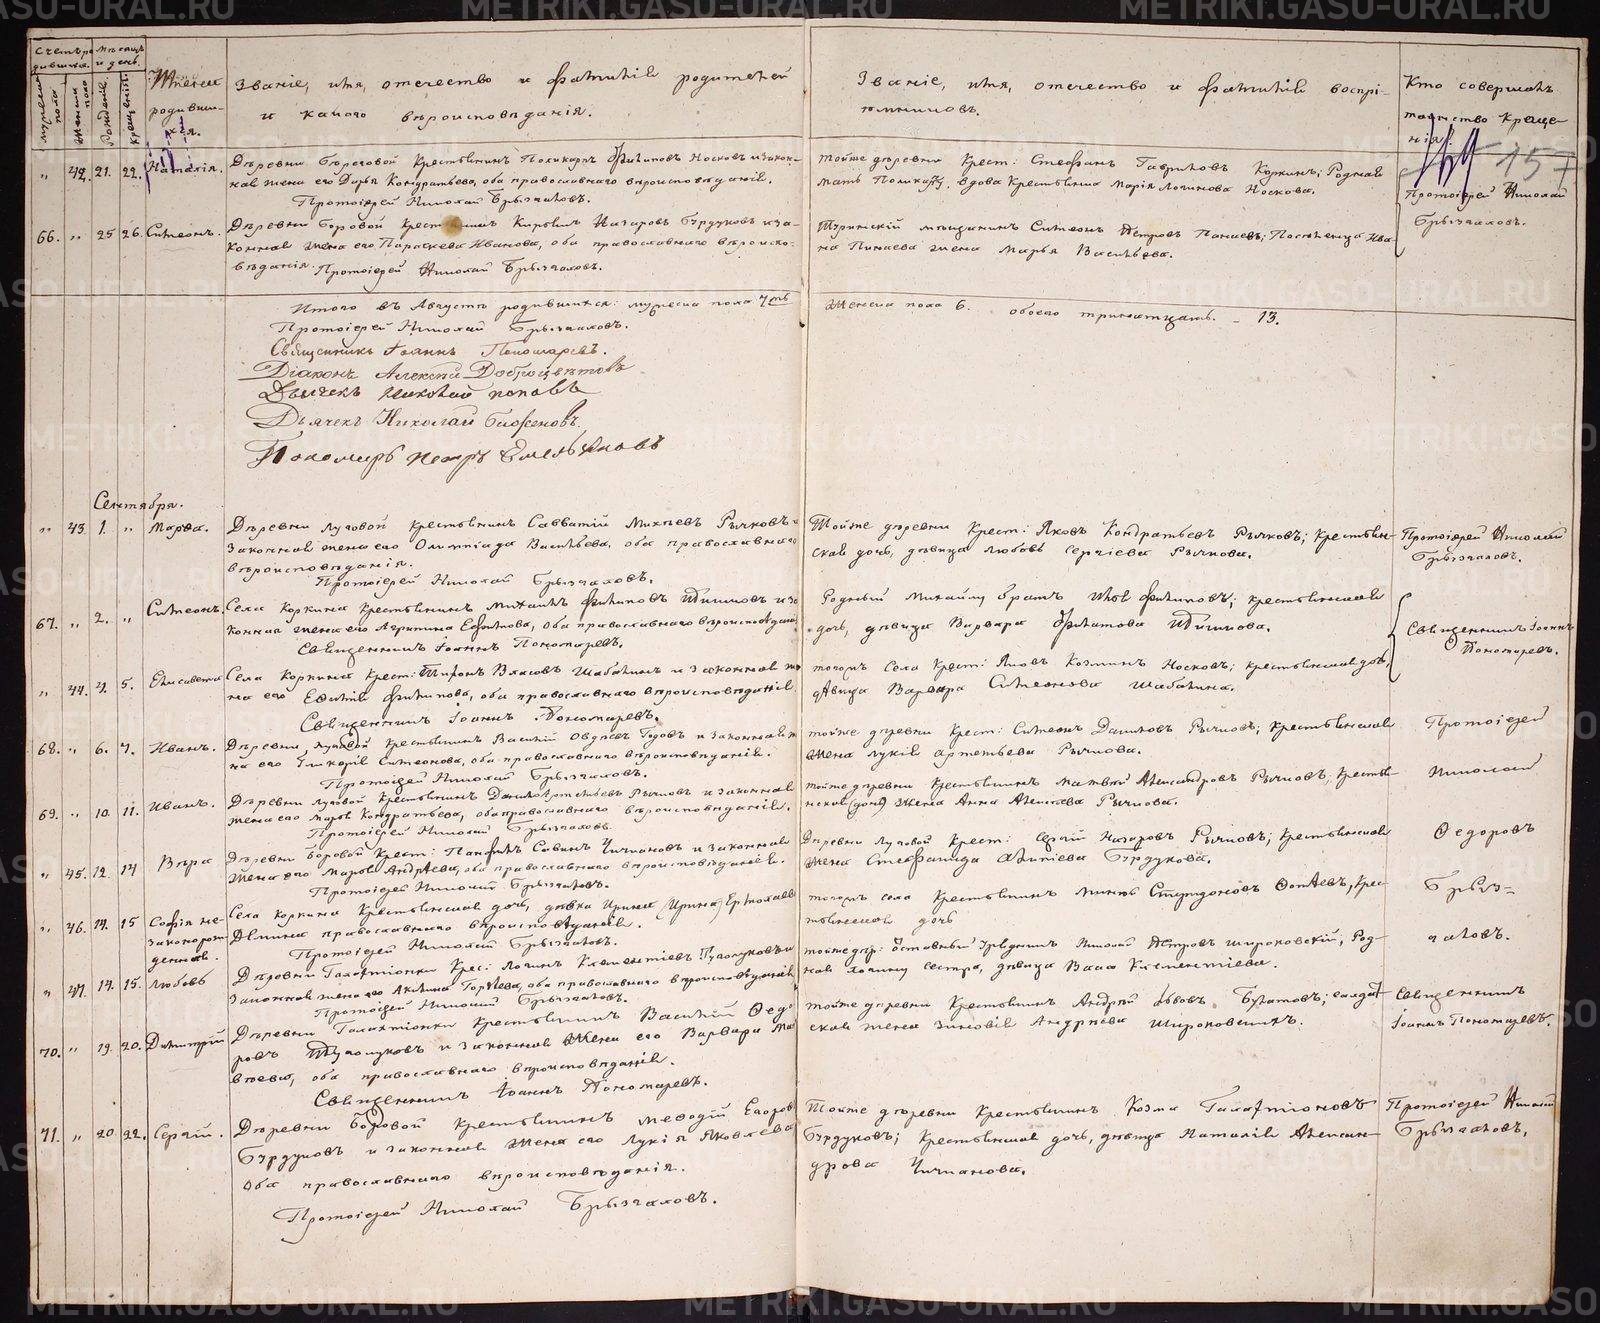 METRIKI.GASU-URAL.RU
Счетъ родившихся.
Мѣсяцъ и день.
мужеска пола
женска пола
Рожденія.
Крещенія.
Имена родивши-
хся.
Званіе, имя, отечество и фамилія родителей
и какого вѣроисповѣданія.
Званіе, имя, отечество и фамилія воспрі-
емниковъ.
Кто совершалъ
таинство Креще-
нія.
157
„ 42. 21. 22. Наталія.
Деревни Береговой Крестьянинъ Поликарпъ Филиповъ Носковъ и закон-
ная жена его Дарья Кондратьева, оба православнаго вѣроисповѣданія.
Протоіерей Николай Брызгаловъ.
тойже деревни Крест: Стефанъ Гавриловъ Коркинъ; Родная
мать Поликарпа, вдова Крестьянка Марія Логинова Носкова.
Протоіерей Николай
Брызгаловъ.
66. „ 25 26. Симеонъ.
Деревни Боровой Крестьянинъ Кирьянъ Назаровъ Бурдуковъ и за-
конная жена его Параскева Иванова, оба православнаго вѣроиспо-
вѣданія. Протоіерей Николай Брызгаловъ.
Туринскій мѣщанинъ Симеонъ Петровъ Панаевъ; Поселенца Ива-
на Пинаева жена Марья Васильева.
Итого въ Августѣ родившихся: мужеска пола 7мь
женска пола 6. обоего тринатцать. – 13.
Протоіерей Николай Брызгаловъ.
Священникъ Іоаннъ Пономаревъ.
Діаконъ Алексѣй Доброцвѣтовъ
Дьячекъ Николай Поповъ
Дьячекъ Николай
Пономарь Петръ Емельяновъ
Сентября.
„ 43. 1. „ Марѳа.
Деревни Луговой Крестьянинъ Савватій Михѣевъ Рычковъ и
Законная жена его Олимпіада Васильева, оба православнаго
вѣроисповѣданія.
Протоіерей Николай Брызгаловъ.
Тойже деревни Крест: Яковъ Кондратьевъ Рычковъ; Крестьян-
ская дочь, дѣвица Любовь Сергіева Рычкова.
Протоіерей Николай
Брызгаловъ.
67. „ 2. „ Симеонъ.
Села Коркина Крестьянинъ Михаилъ Филиповъ и за-
конная жена его Агрипина Ефимова, оба православнаго вѣроисповѣданія
Священникъ Іоаннъ Пономаревъ.
Родный Михайлу братъ Филиповъ; крестьянская
дочь, дѣвица Варвара Филатова
Священникъ Іоаннъ
Пономаревъ.
„ 44. 4. 5. Елисавета
Села Коркина Крест: Тихонъ Власовъ Шабалинъ и законная же-
на его Филипова, оба православнаго вѣроисповѣданія
Священникъ Іоаннъ Пономаревъ.
тогожъ Села Крест: Яковъ Козминъ Носковъ; крестьянская дочь,
дѣвица Варвара Симеонова Шабалина.
68. „ 6. 7. Иванъ.
Деревни Луговой Крестьянинъ Василій и законная же-
на его Гликерія Симеонова, оба православнаго вѣроисповѣданія.
Протоіерей Николай Брызгаловъ.
тойже деревни Крест: Симеонъ Даниловъ Рычковъ; крестьянская
жена Лукія Артемьева Рычкова.
Протоіерей
69. „ 10. 11. Иванъ.
Деревни Луговой Крестьянинъ Данило Артемьевъ Рычковъ и законная
жена его Марѳа Кондратьева, оба православнаго вѣроисповѣданія.
Протоіерей Николай Брызгаловъ.
тойже деревни Крестьянинъ Матвѣй Александровъ Рычковъ, Крестья-
нская (дочь) жена Анна Алексѣева Рычкова.
Николай
„ 45. 12. 14 Вѣра
Деревни Боровой Крест: Панфилъ Савинъ Чичкановъ и законная
жена его Марѳа Андреева, оба православнаго вѣроисповѣданія.
Протоіерей Николай Брызгаловъ.
Деревни Луговой Крест: Сергій Назаровъ Рычковъ; Крестьянская
жена Стефанида Бурдукова.
Ѳедоровъ
„ 46. 14. 15 Софія не-
законорож-
денная.
Села Коркина Крестьянская дочь, дѣвка Ирина (Ирина) Ермолаева
Демина православнаго вѣроисповѣданія.
Протоіерей Николай Брызгаловъ.
тогожъ села Крестьянинъ Спиридоновъ Крес-
тьянская дочь
Брыз-
„ 47. 14. 15. Любовь
Деревни Галактіонки Крес: Логинъ Климентіевъ и
Законная жена его Акилина Гордѣева, оба православнаго вѣроисповѣданія
Протоіерей Николай Брызгаловъ.
тойже дер: Отставный Урядникъ Николай Петровъ Широковскій, Род-
ная Логину сестра, дѣвица Васса Климентіева.
галовъ.
70. „ 19. 20. Димитрій
Деревни Галактіонки Крестьянинъ Василій Ѳедо-
ровъ и законная жена его Варвара Мат-
вѣева, оба православнаго вѣроисповѣданія.
Священникъ Іоаннъ Пономаревъ.
тойже деревни Крестьянинъ Андрей Львовъ Булатовъ; солдат-
ская жена Зиновія Андреева
Священникъ
Іоаннъ Пономаревъ.
71. „ 20. 22. Сергій.
Деревни Боровой Крестьянинъ Меѳодій Егоровъ
Бурдуковъ и законная жена его Лукія Яковлева
оба православнаго вѣроисповѣданія.
Протоіерей Николай Брызгаловъ.
Тойже деревни Крестьянинъ Козма Галактіоновъ
Бурдуковъ; Крестьянская дочь, дѣвица Наталія Алексан-
дрова Чичканова.
Протоіерей Николай
Брызгаловъ.